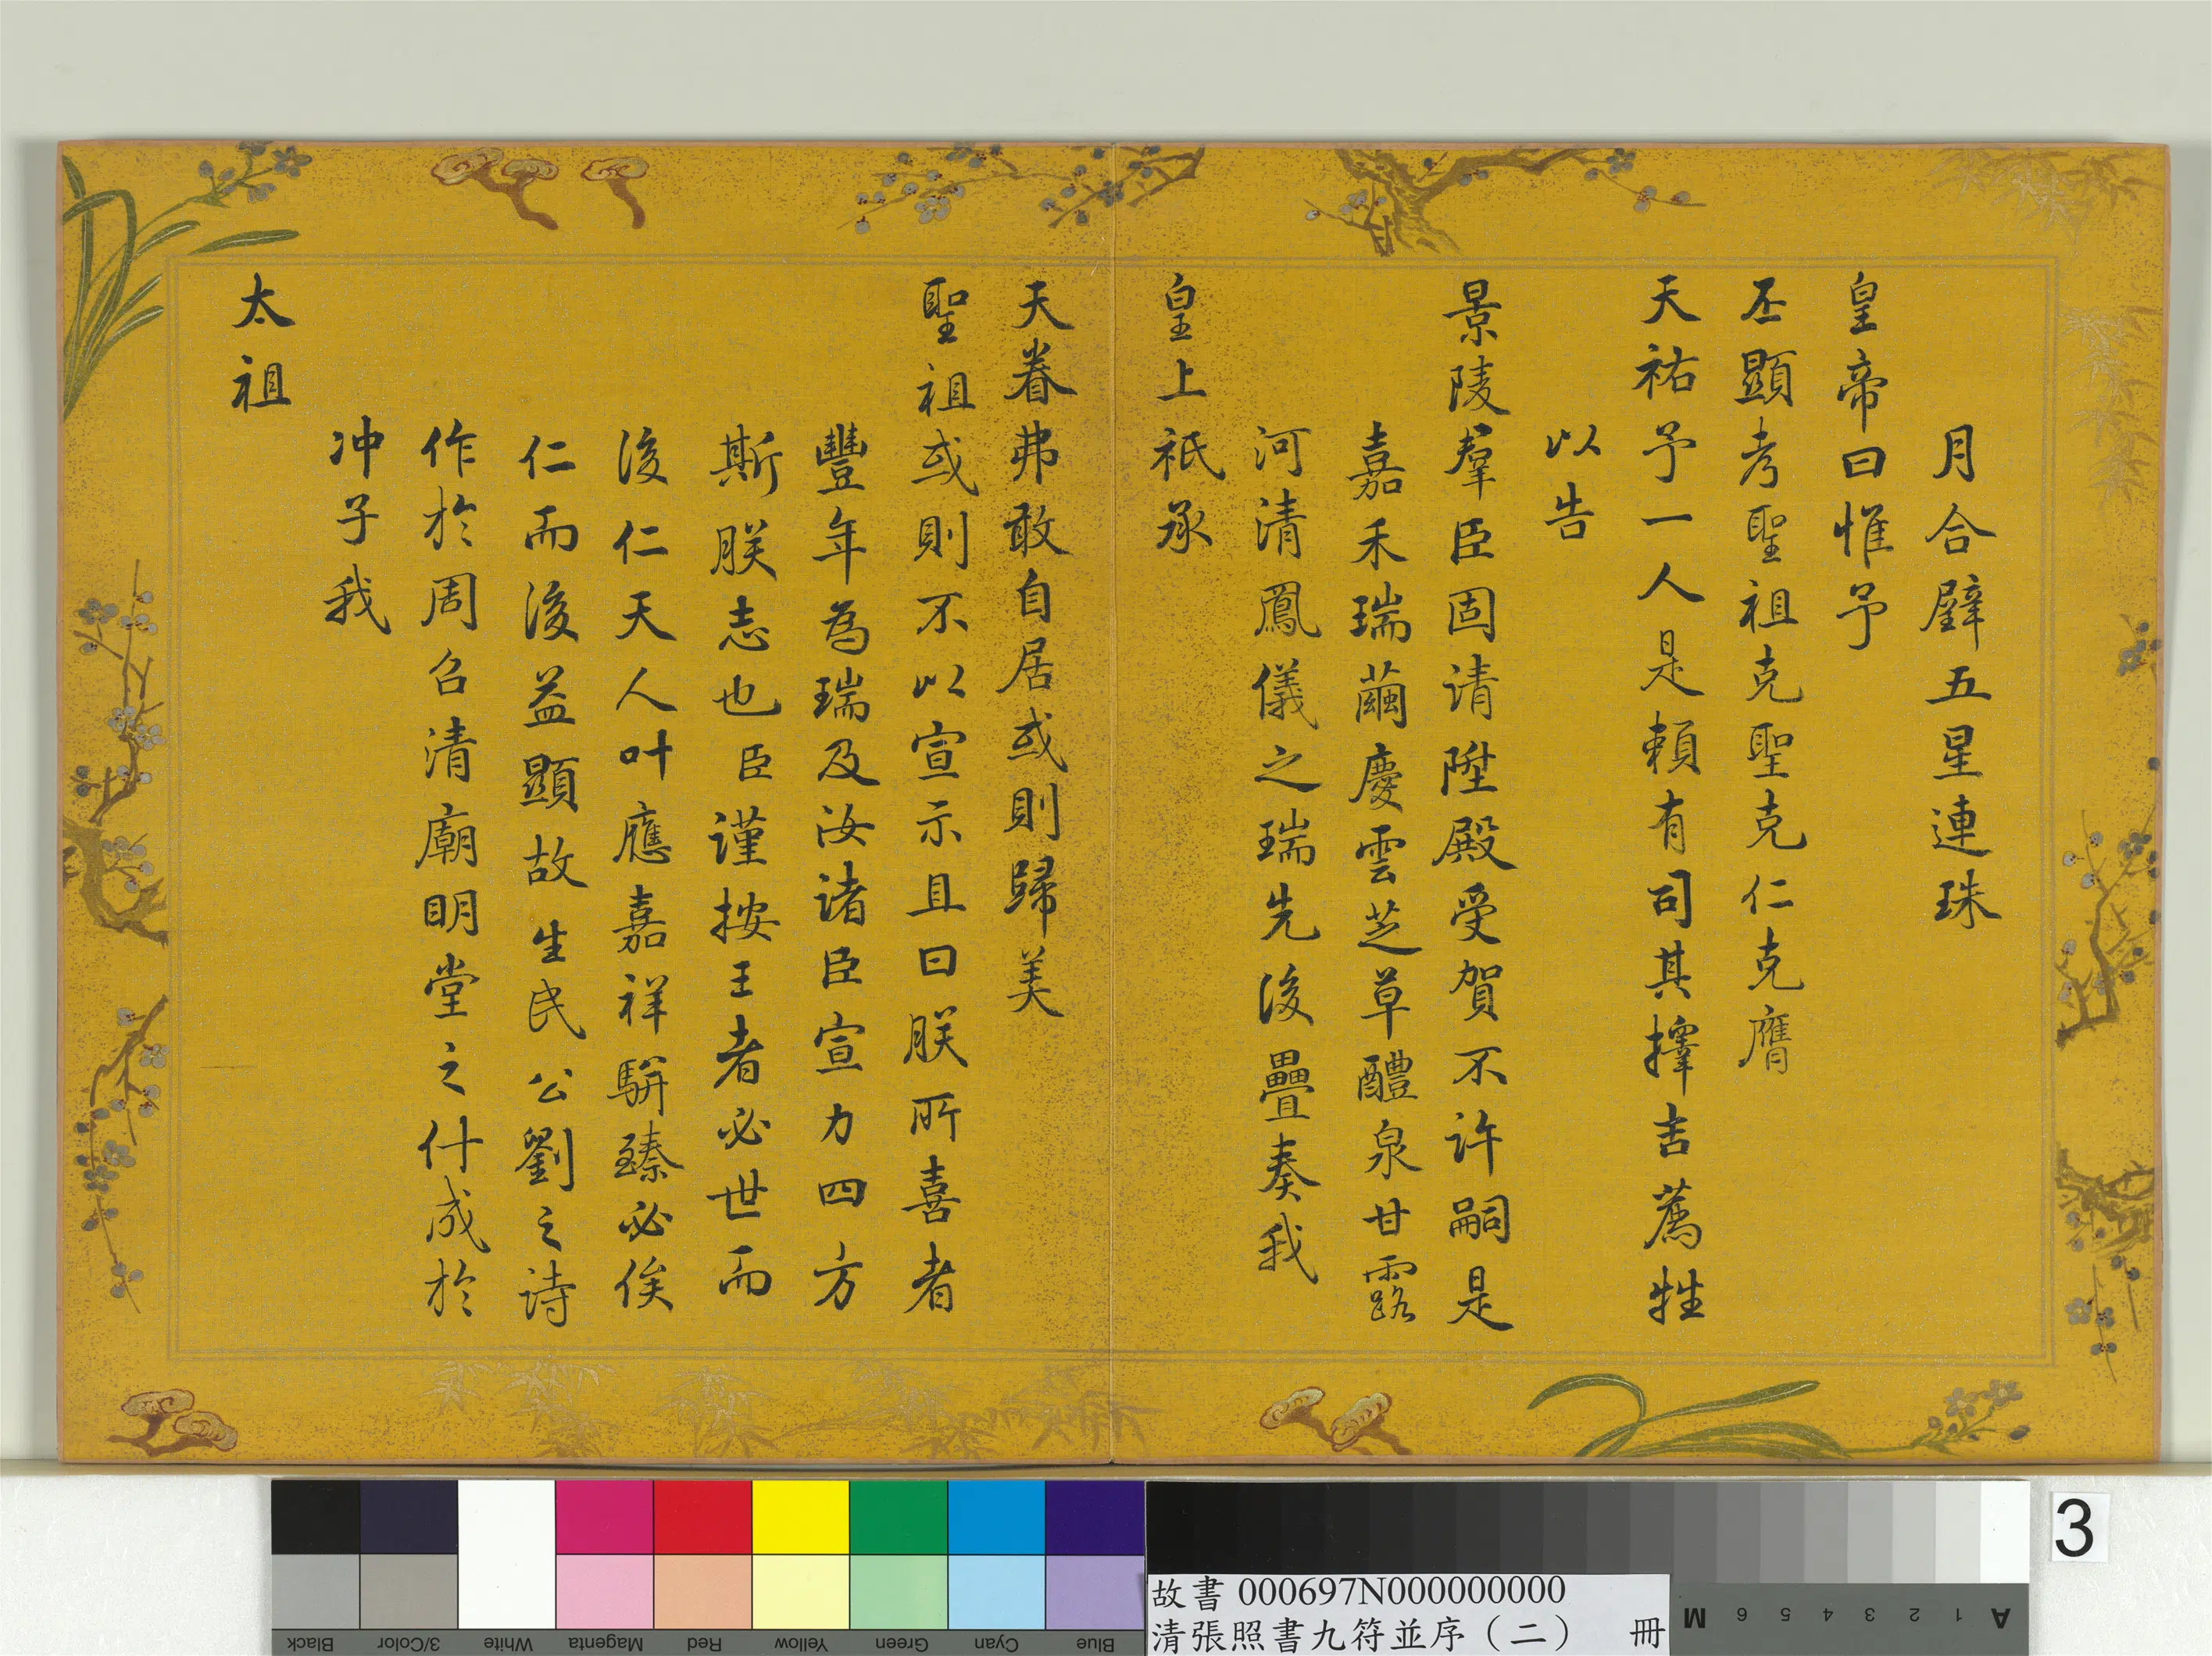 月合璧五星連珠
皇帝曰惟予
丕顯考聖祖克聖克仁克膺
天祐予一人是賴有司其擇吉薦牲
以告
景陵羣臣固请陞殿受賀不许嗣是
嘉禾瑞繭慶雲芝草醴泉甘露
河清鳳儀之瑞先後疊奏我
皇上祇承
天眷弗敢自居或則歸美
聖祖或則不以宣示且曰朕所喜者
豐年為瑞及汝诸臣宣力四方
斯朕志也臣谨按王者必世而
後仁天人叶應嘉祥駢臻必俟
仁而後益顯故生民公劉之诗
作於周召清廟明堂之什成於
冲子我
太祖
3
故書 000697N000000000
清張照書九符並序（二） 冊
Black
3/Color
White
Magenta
Red
Yellow
Green
Cyan
Blue
M 6 5 4 3 2 1 A